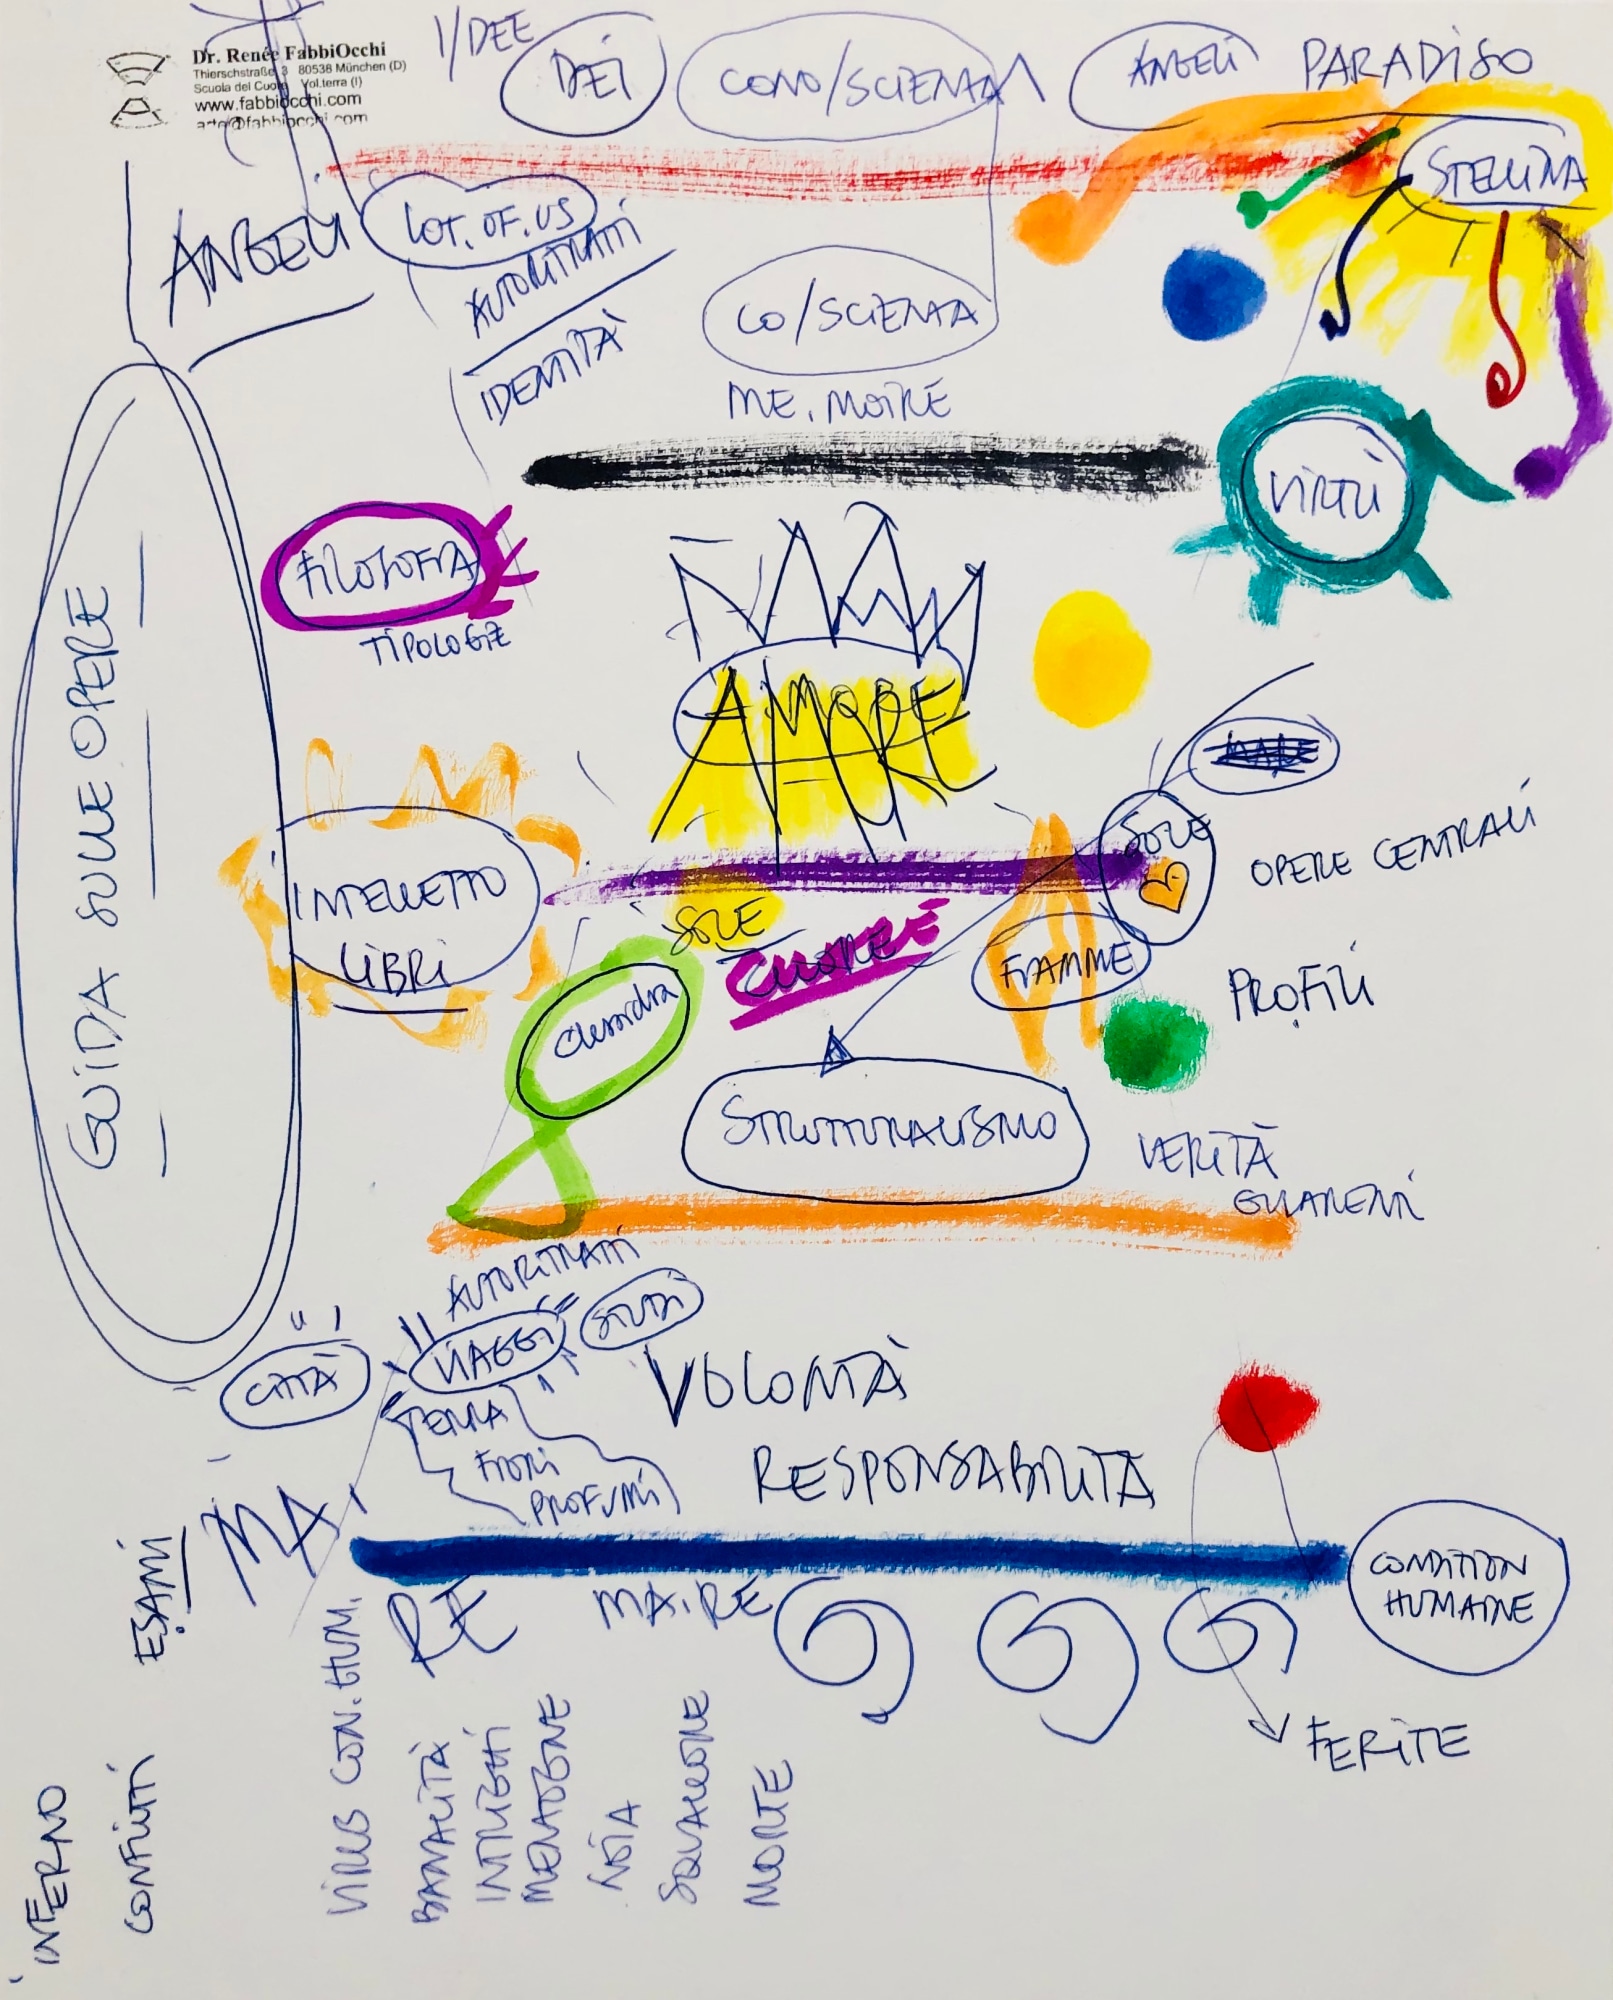 Dr. Renée FabbiOcchi
Thierschstraße 3 80538 München (D)
Scuola del Cuore Vol.terra (I)
www.fabbiocchi.com
arte@fabbiocchi.com
I/DEE
DEI
CONO/SCIENZA
ANGELI
PARADISO
STELLINA
ANGELI
LOT.OF.US
AUTORITRATTI
IDENTITÀ
CO/SCIENZA
ME.MOIRE
VIRTÙ
FILOSOFIA
TIPOLOGIE
AMORE
AMORE
GUIDA SULLE OPERE
SOLE
OPERE CENTRALI
INTELLETTO
LIBRI
SOLE
CUORE
FIAMME
PROFILI
STRUTTURALISMO
VERITÀ
AUTORITRATTI
STUDI
VIAGGI
CITTÀ
VOLONTÀ
TERRA
FIORI
PROFUMI
RESPONSABILITÀ
MA.
RE
MA.RE
CONDITION
HUMAINE
ESAMI
FERITE
INFERNO
CONFLITTI
VIRUS CON.HUM.
BANALITÀ
INTRIGHI
MENZOGNE
NOIA
SQUALLORE
MORTE